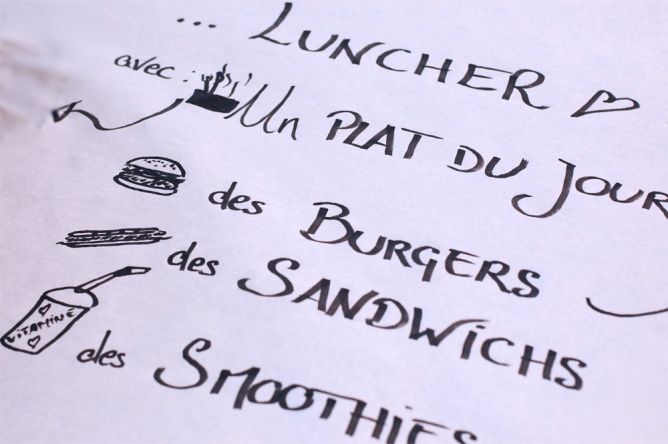 ... LUNCHER
avec : Un PLAT DU JOUR
des BURGERS
des SANDWICHS
VITAMINÉ
des SMOOTHIES